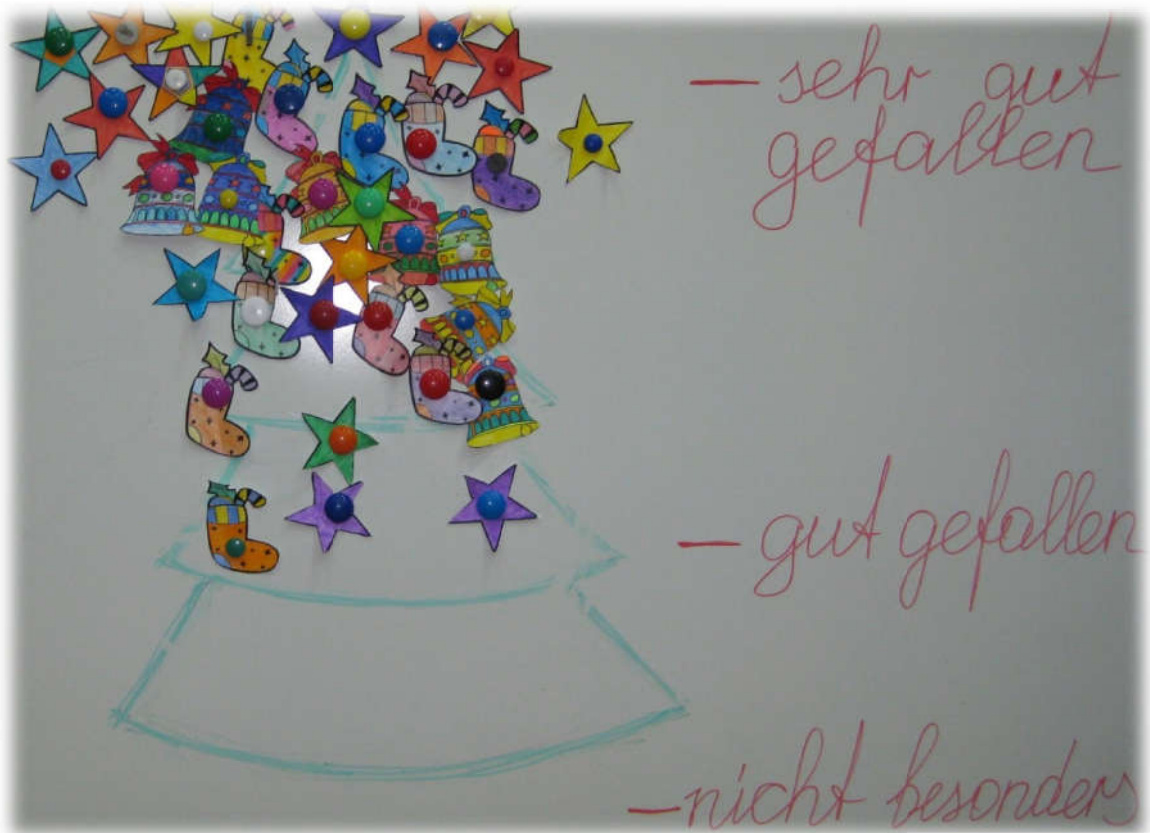 – sehr gut
gefallen
– gut gefallen
– nicht besonders